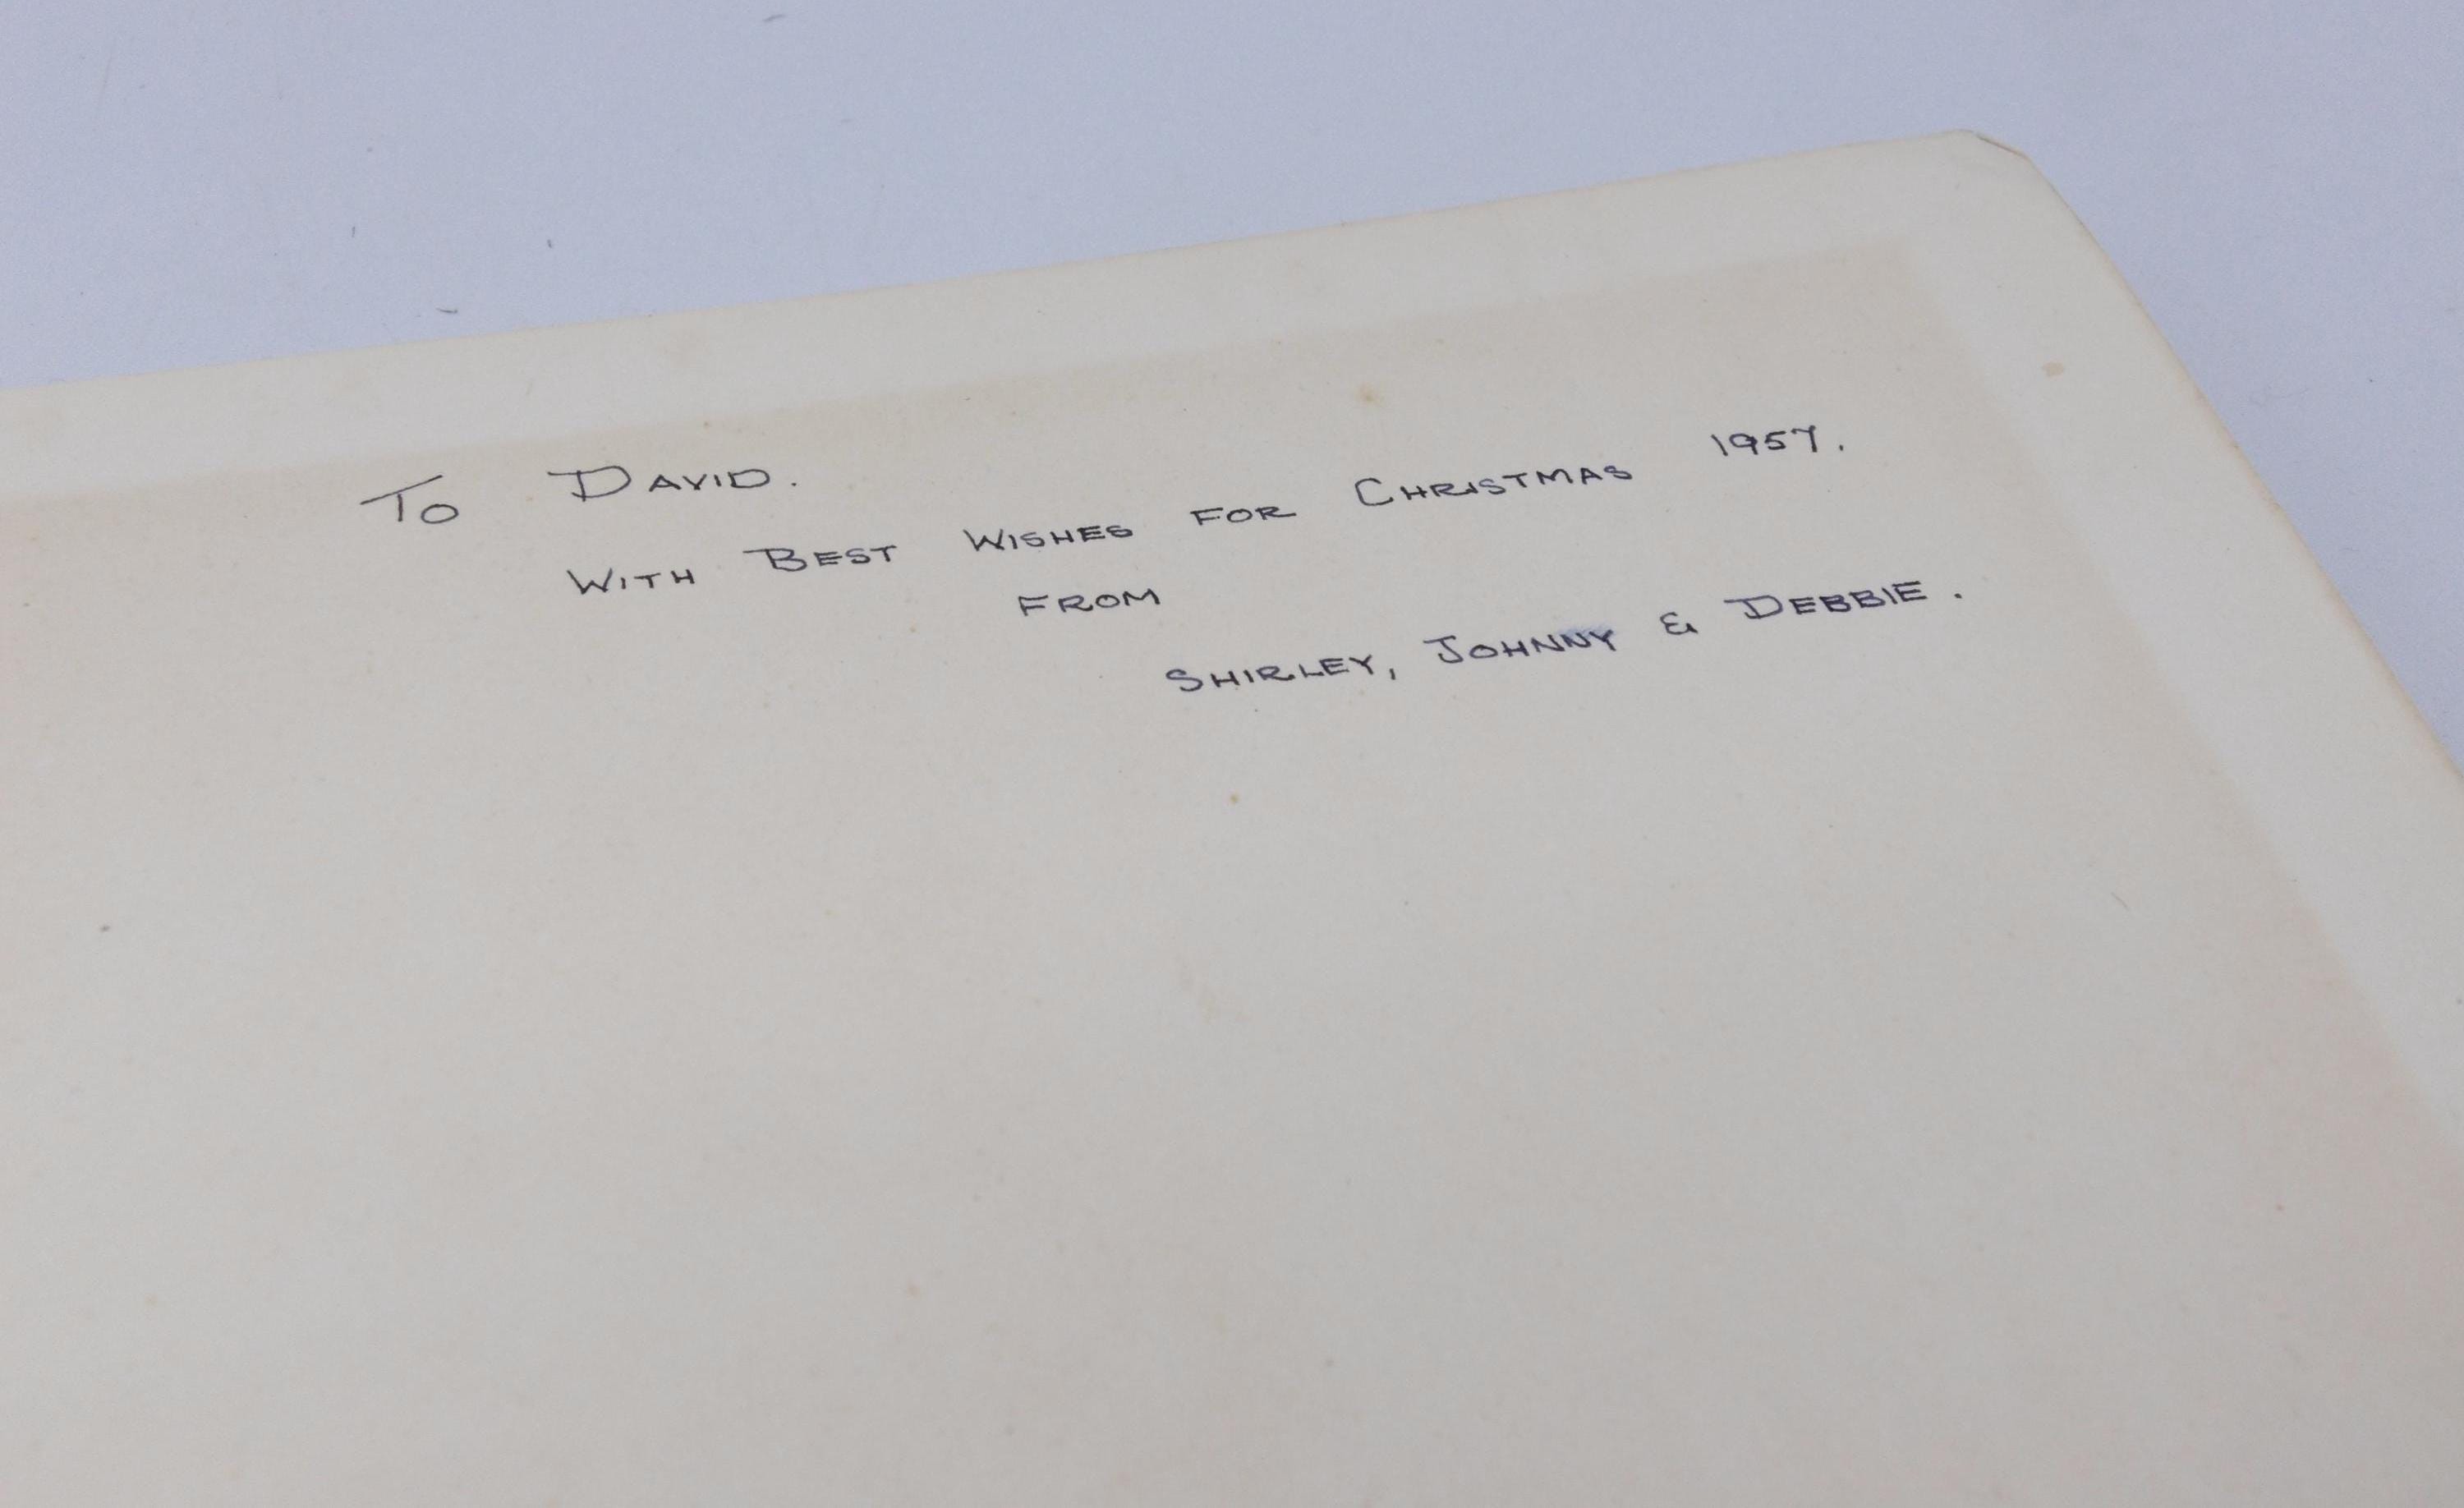 To DAVID.
WITH BEST WISHES FOR CHRISTMAS 1957.
FROM
SHIRLEY, JOHNNY & DEBBIE.